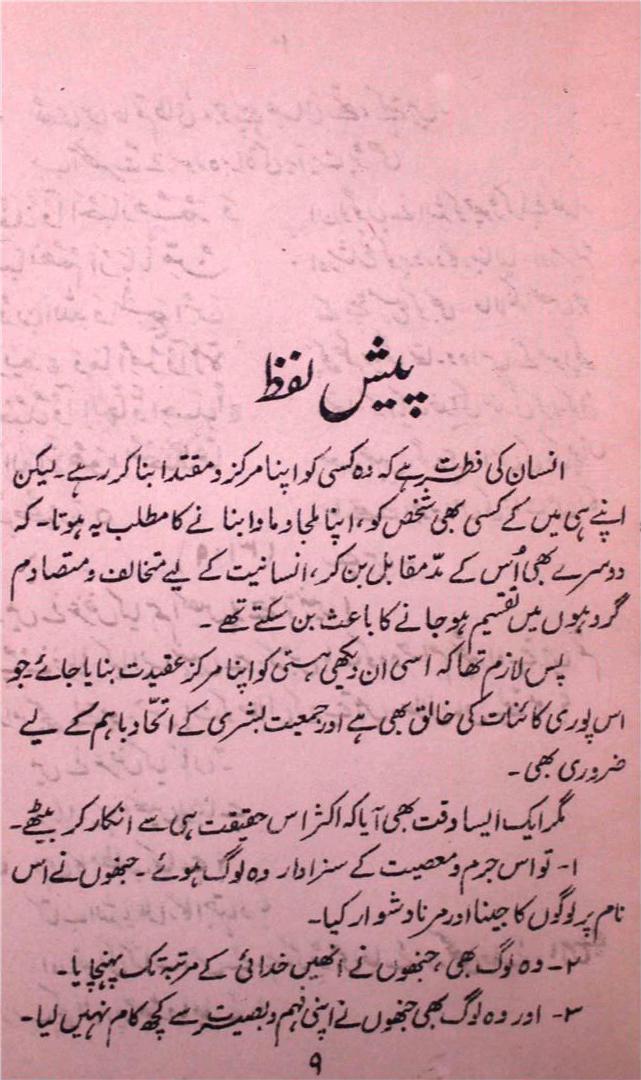 پیش لفظ
انسان کی فطرت ہے کہ وہ کسی کو اپنا مرکز و مقتدا بنا کر رہے۔ لیکن
اپنے ہی میں کے کسی بھی شخص کو، اپنا ملجا و ماوا بنانے کا مطلب یہ ہوتا۔ کہ
دوسرے بھی اُس کے مدّ مقابل بن کر، انسانیت کے لیے متخالف و متصادم
گروہوں میں تقسیم ہو جانے کا باعث بن سکتے تھے۔
پس لازم تھا کہ اسی ان دیکھی ہستی کو اپنا مرکز عقیدت بنایا جائے جو
اس پوری کائنات کی خالق بھی ہے اور جمعیت بشری کے اتحّاد باہم کے لیے
ضروری بھی۔
مگر ایک ایسا وقت بھی آیا کہ اکثر اس حقیقت ہی سے انکار کر بیٹھے۔
۱- تو اس جرم و معصیت کے سزاوار وہ لوگ ہوئے۔ جنھوں نے اس
نام پر لوگوں کا جینا اور مرنا دشوار کیا۔
۲- وہ لوگ بھی، جنھوں نے انھیں خدائی کے مرتبۂ تک پہنچایا۔
۳- اور وہ لوگ بھی جنھوں نے اپنی فہم و بصیرت سے کچھ کام نہیں لیا۔
۹